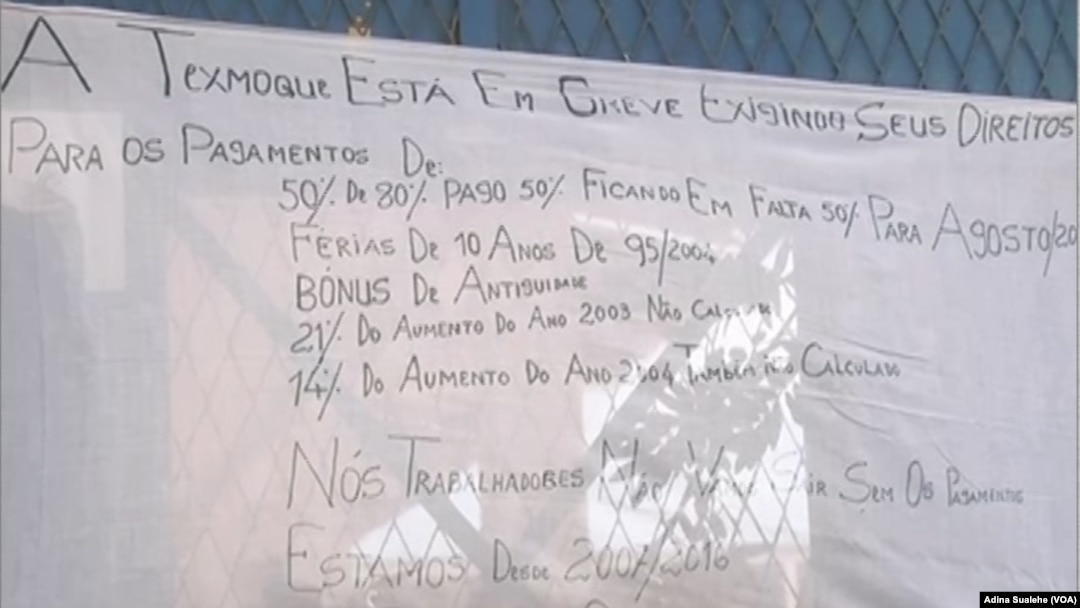 A TEXMOQUE ESTÁ EM GREVE EXIGINDO SEUS DIREITOS
PARA OS PAGAMENTOS DE:
50% DE 80% PAGO 50% FICANDO EM FALTA 50% PARA AGOSTO/20
FÉRIAS DE 10 ANOS DE 95/2004
BÓNUS DE ANTIGUIDADE
21% DO AUMENTO DO ANO 2003 NÃO
14% DO AUMENTO DO ANO 2004 TAMBÉM NÃO CALCULADO
NÓS TRABALHADORES NÃO SAIR SEM OS PAGAMENTOS
ESTAMOS DESDE 2007/2016
Adina Sualehe (VOA)